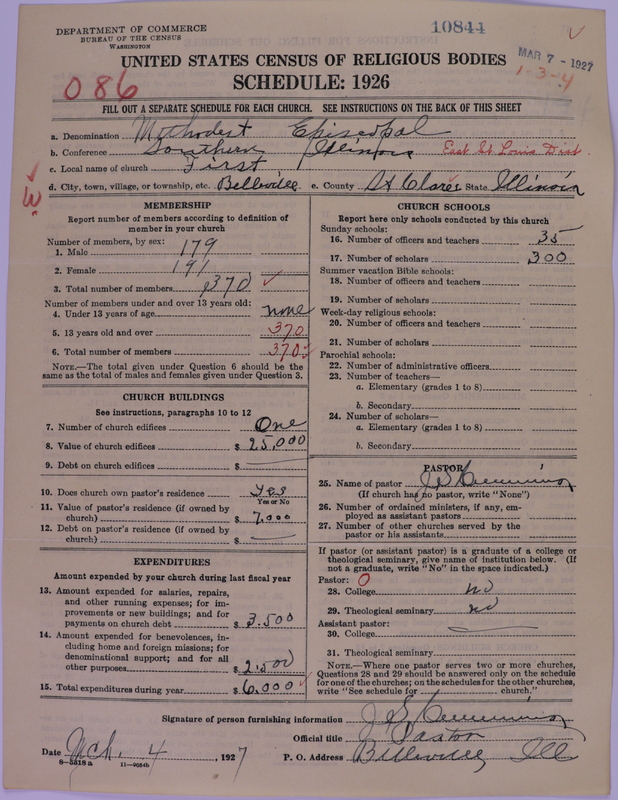 DEPARTMENT OF COMMERCE
BUREAU OF THE CENSUS
WASHINGTON
10844
MAR 7 - 1927
1-3-4
UNITED STATES CENSUS OF RELIGIOUS BODIES
086
SCHEDULE: 1926
FILL OUT A SEPARATE SCHEDULE FOR EACH CHURCH. SEE INSTRUCTIONS ON THE BACK OF THIS SHEET
a. Denomination Methodest Episcopal
b. Conference Southern Illinois East St Louis Dist
c. Local name of church First
d. City, town, village, or township, etc. Belleville e. County St Clare State Illinois
MEMBERSHIP
Report number of members according to definition of
member in your church
Number of members, by sex:
1. Male 179
2. Female 191
3. Total number of members 370
Number of members under and over 13 years old:
4. Under 13 years of age none
5. 13 years old and over 370
6. Total number of members 370
NOTE.—The total given under Question 6 should be
the same as the total of males and females given under Question 3.
CHURCH BUILDINGS
See instructions, paragraphs 10 to 12
7. Number of church edifices One
8. Value of church edifices $ 25,000
9. Debt on church edifices $ —
10. Does church own pastor's residence Yes
Yes or No
11. Value of pastor's residence (if owned by
church) $ 7,000
12. Debt on pastor's residence (if owned by
church) $ —
EXPENDITURES
Amount expended by your church during last fiscal year
13. Amount expended for salaries, repairs,
and other running expenses; for im-
provements or new buildings; and for
payments on church debt $ 3.500
14. Amount expended for benevolences, in-
cluding home and foreign missions; for
denominational support; and for all
other purposes $ 2.500
15. Total expenditures during year $ 6,000
CHURCH SCHOOLS
Report here only schools conducted by this church
Sunday schools:
16. Number of officers and teachers 35
17. Number of scholars 300
Summer vacation Bible schools:
18. Number of officers and teachers
19. Number of scholars
Week-day religious schools:
20. Number of officers and teachers
21. Number of scholars
Parochial schools:
22. Number of administrative officers
23. Number of teachers—
a. Elementary (grades 1 to 8)
b. Secondary
24. Number of scholars—
a. Elementary (grades 1 to 8)
b. Secondary
PASTOR
25. Name of pastor J S Cummins
(If church has no pastor, write "None")
26. Number of ordained ministers, if any, em-
ployed as assistant pastors
27. Number of other churches served by the
pastor or his assistants
If pastor (or assistant pastor) is a graduate of a college or
theological seminary, give name of institution below. (If
not a graduate, write "No" in the space indicated.)
Pastor: 0
28. College no
29. Theological seminary no
Assistant pastor:
30. College —
31. Theological seminary
NOTE.—Where one pastor serves two or more churches,
Questions 28 and 29 should be answered only on the schedule
for one of the churches; on the schedules for the other churches,
write "See schedule for church."
Signature of person furnishing information J S Cummins
Official title Pastor
Date Mch. 4, 1927 P. O. Address Belleville Ill
8-5518 a 11-9034b